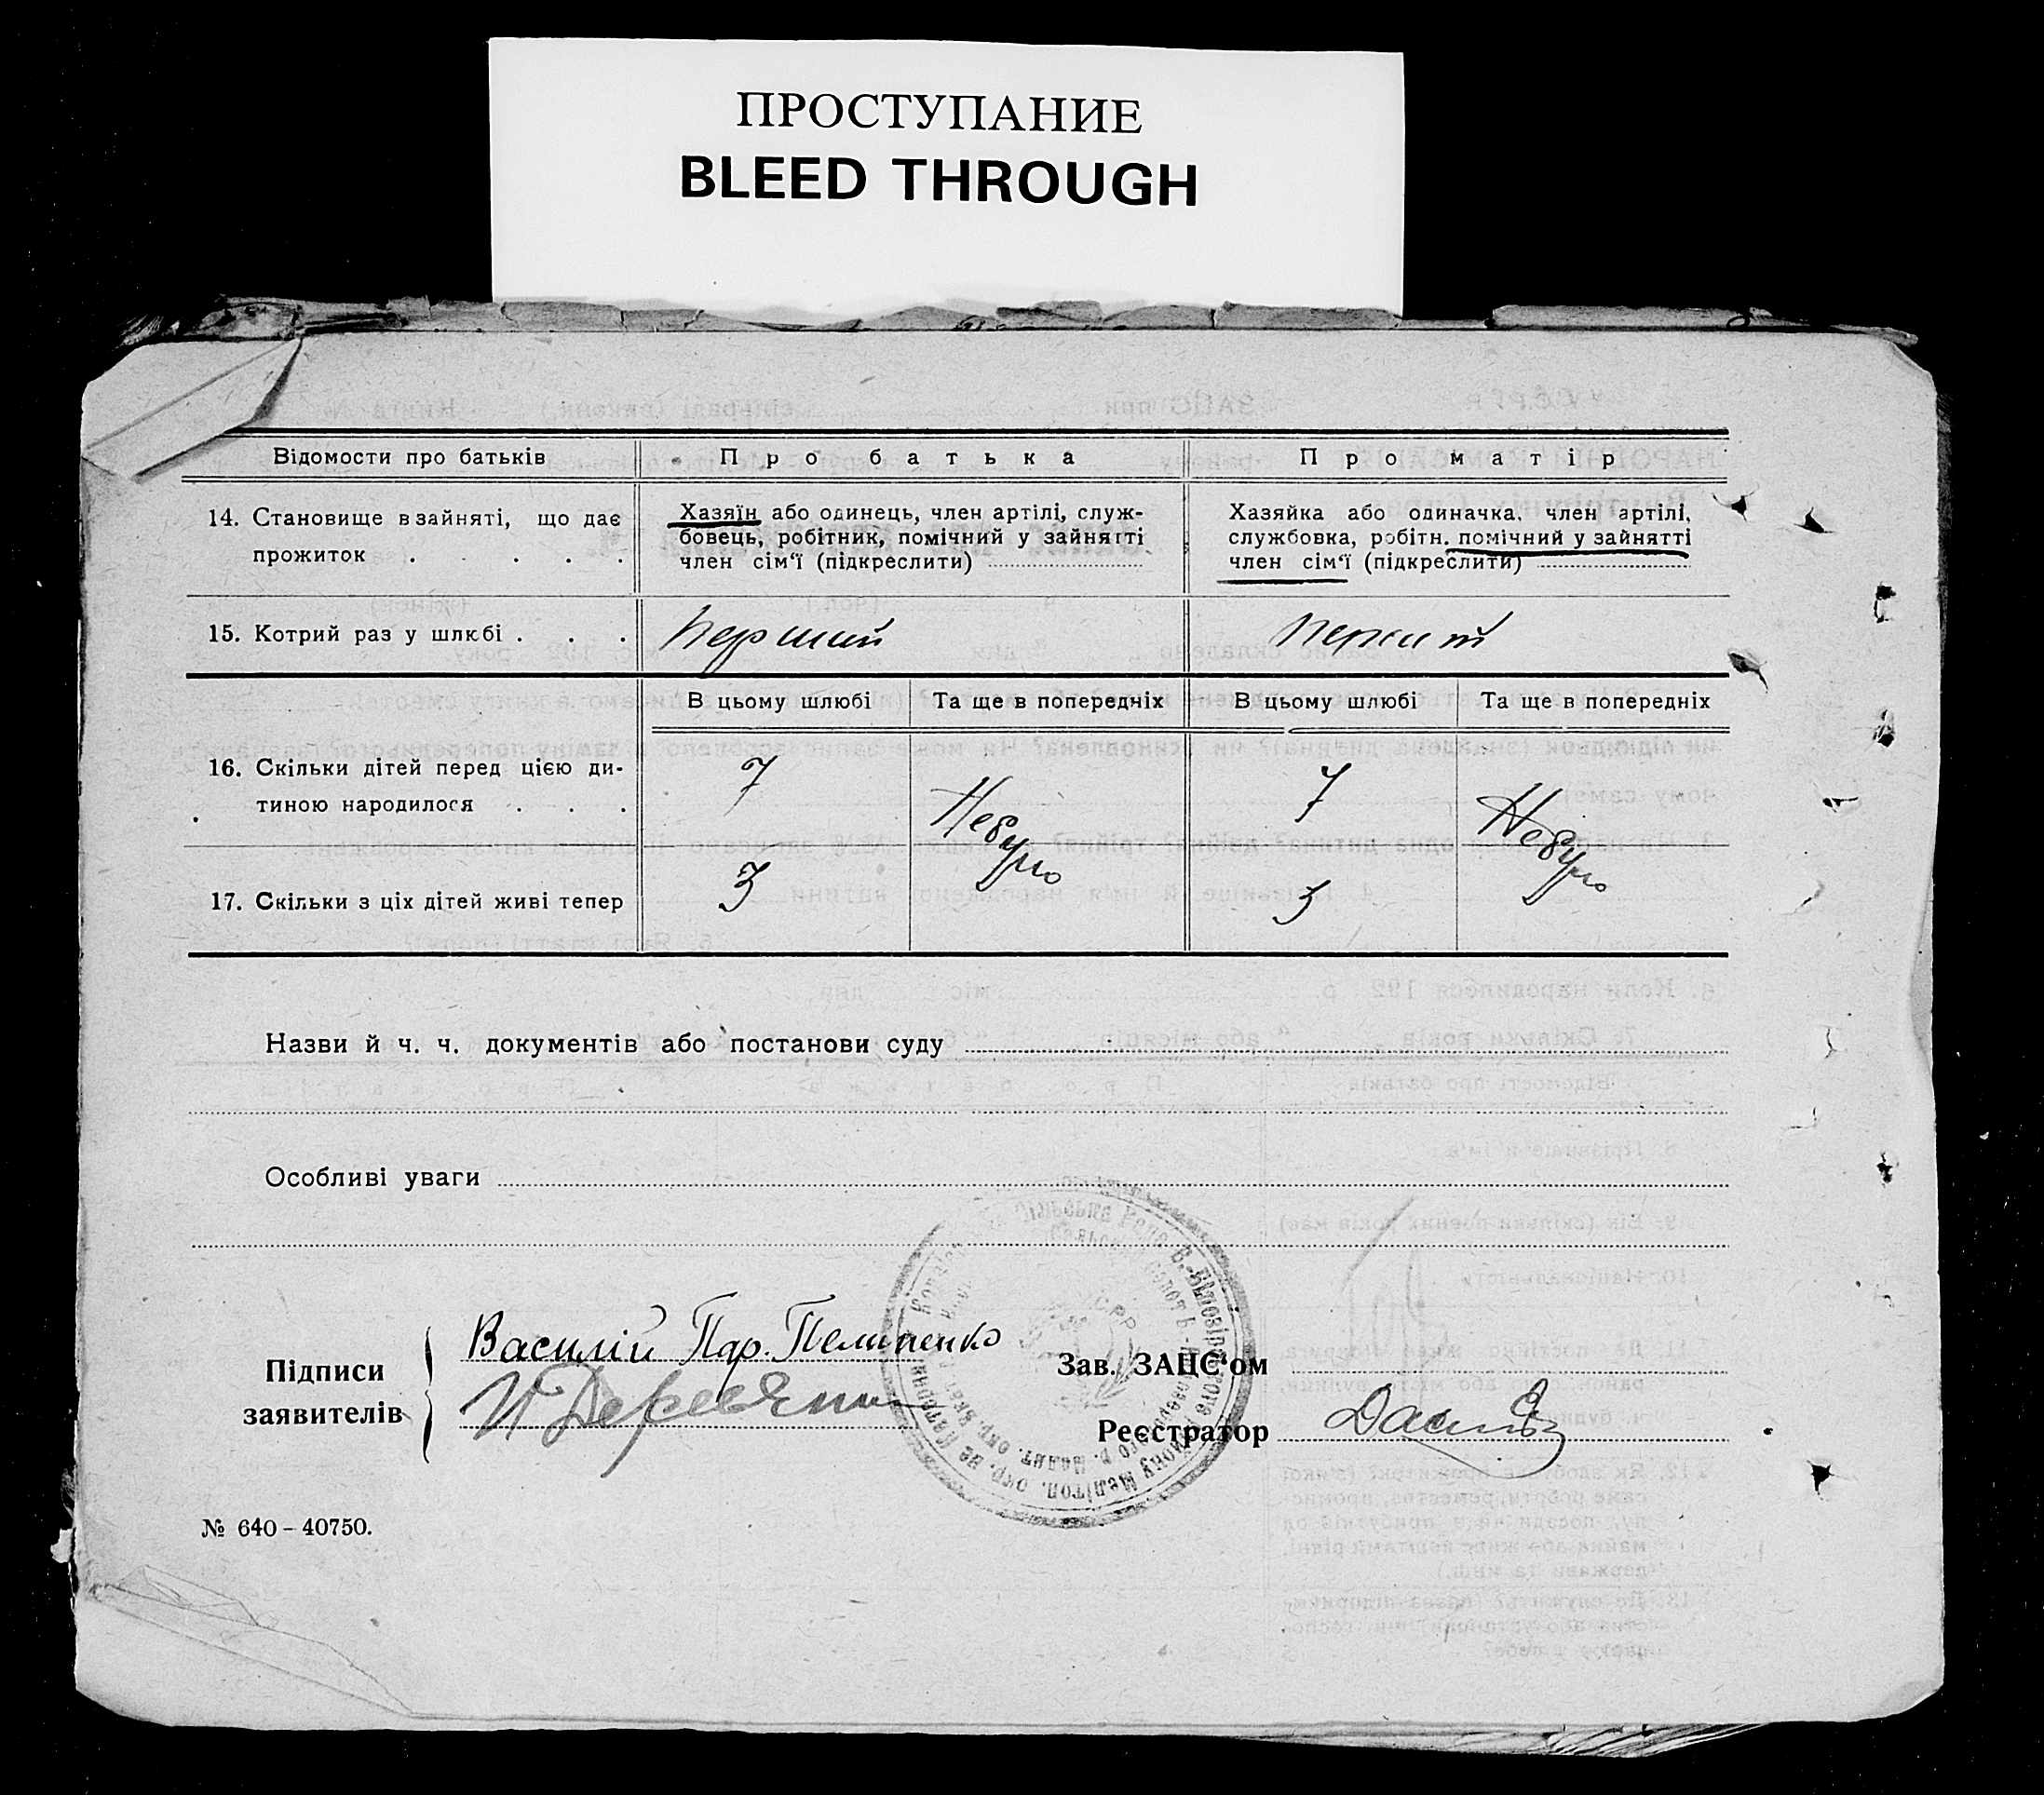 ПРОСТУПАНИЕ
BLEED THROUGH
Відомости про батьків
Про батька
Про матір
14. Становище в зайняті, що дає
прожиток . . . .
Хазяїн або одинець, член артілі, служ-
бовець, робітник, помічний у зайнятті
член сім‘ї (підкреслити)
Хазяйка або одиначка, член артілі,
службовка, робітн. помічний у зайнятті
член сім‘ї (підкреслити)
15. Котрий раз у шлюбі . . .
Перший
В цьому шлюбі
Та ще в попередніх
В цьому шлюбі
Та ще в попередніх
16. Скільки дітей перед цією ди-
тиною народилося . . .
7
Небуло
7
Небуло
17. Скільки з ціх дітей живі тепер
3
3
Назви й ч. ч. документів або постанови суду
Особливі уваги
Підписи
заявителів
Василій Пар. Пелипенко
Зав. ЗАЦС‘ом
Реєстратор
№ 640 – 40750.